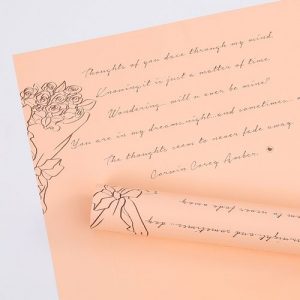 Thoughts of you dace through my mind.
Knowing it is just a matter of time.
Wondering... will u ever be mine?
You are in my dreams, night...and sometimes...
The thoughts seem to never fade away
Corwin Corey Amber.
night...and sometimes... day
to never fade away